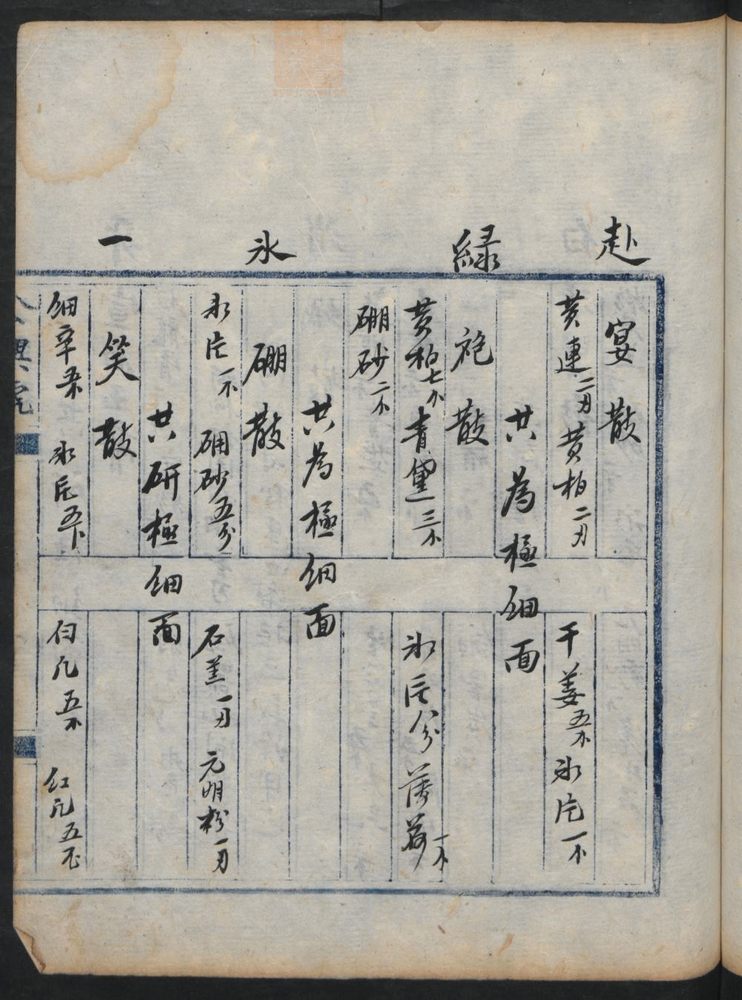 赴宴散
黄連二刃 黄柏二刃 干姜五不 氷片一不
共為極細面
緑袍散
黄柏七不 青黛三不 氷片分 薄荷一不
硼砂二不
共為極細面
氷硼散
氷片一不 硼砂五分 石羔一刃 元明粉一刃
共研極細面
一笑散
細辛 氷片五下 白凡五不 紅凡五不